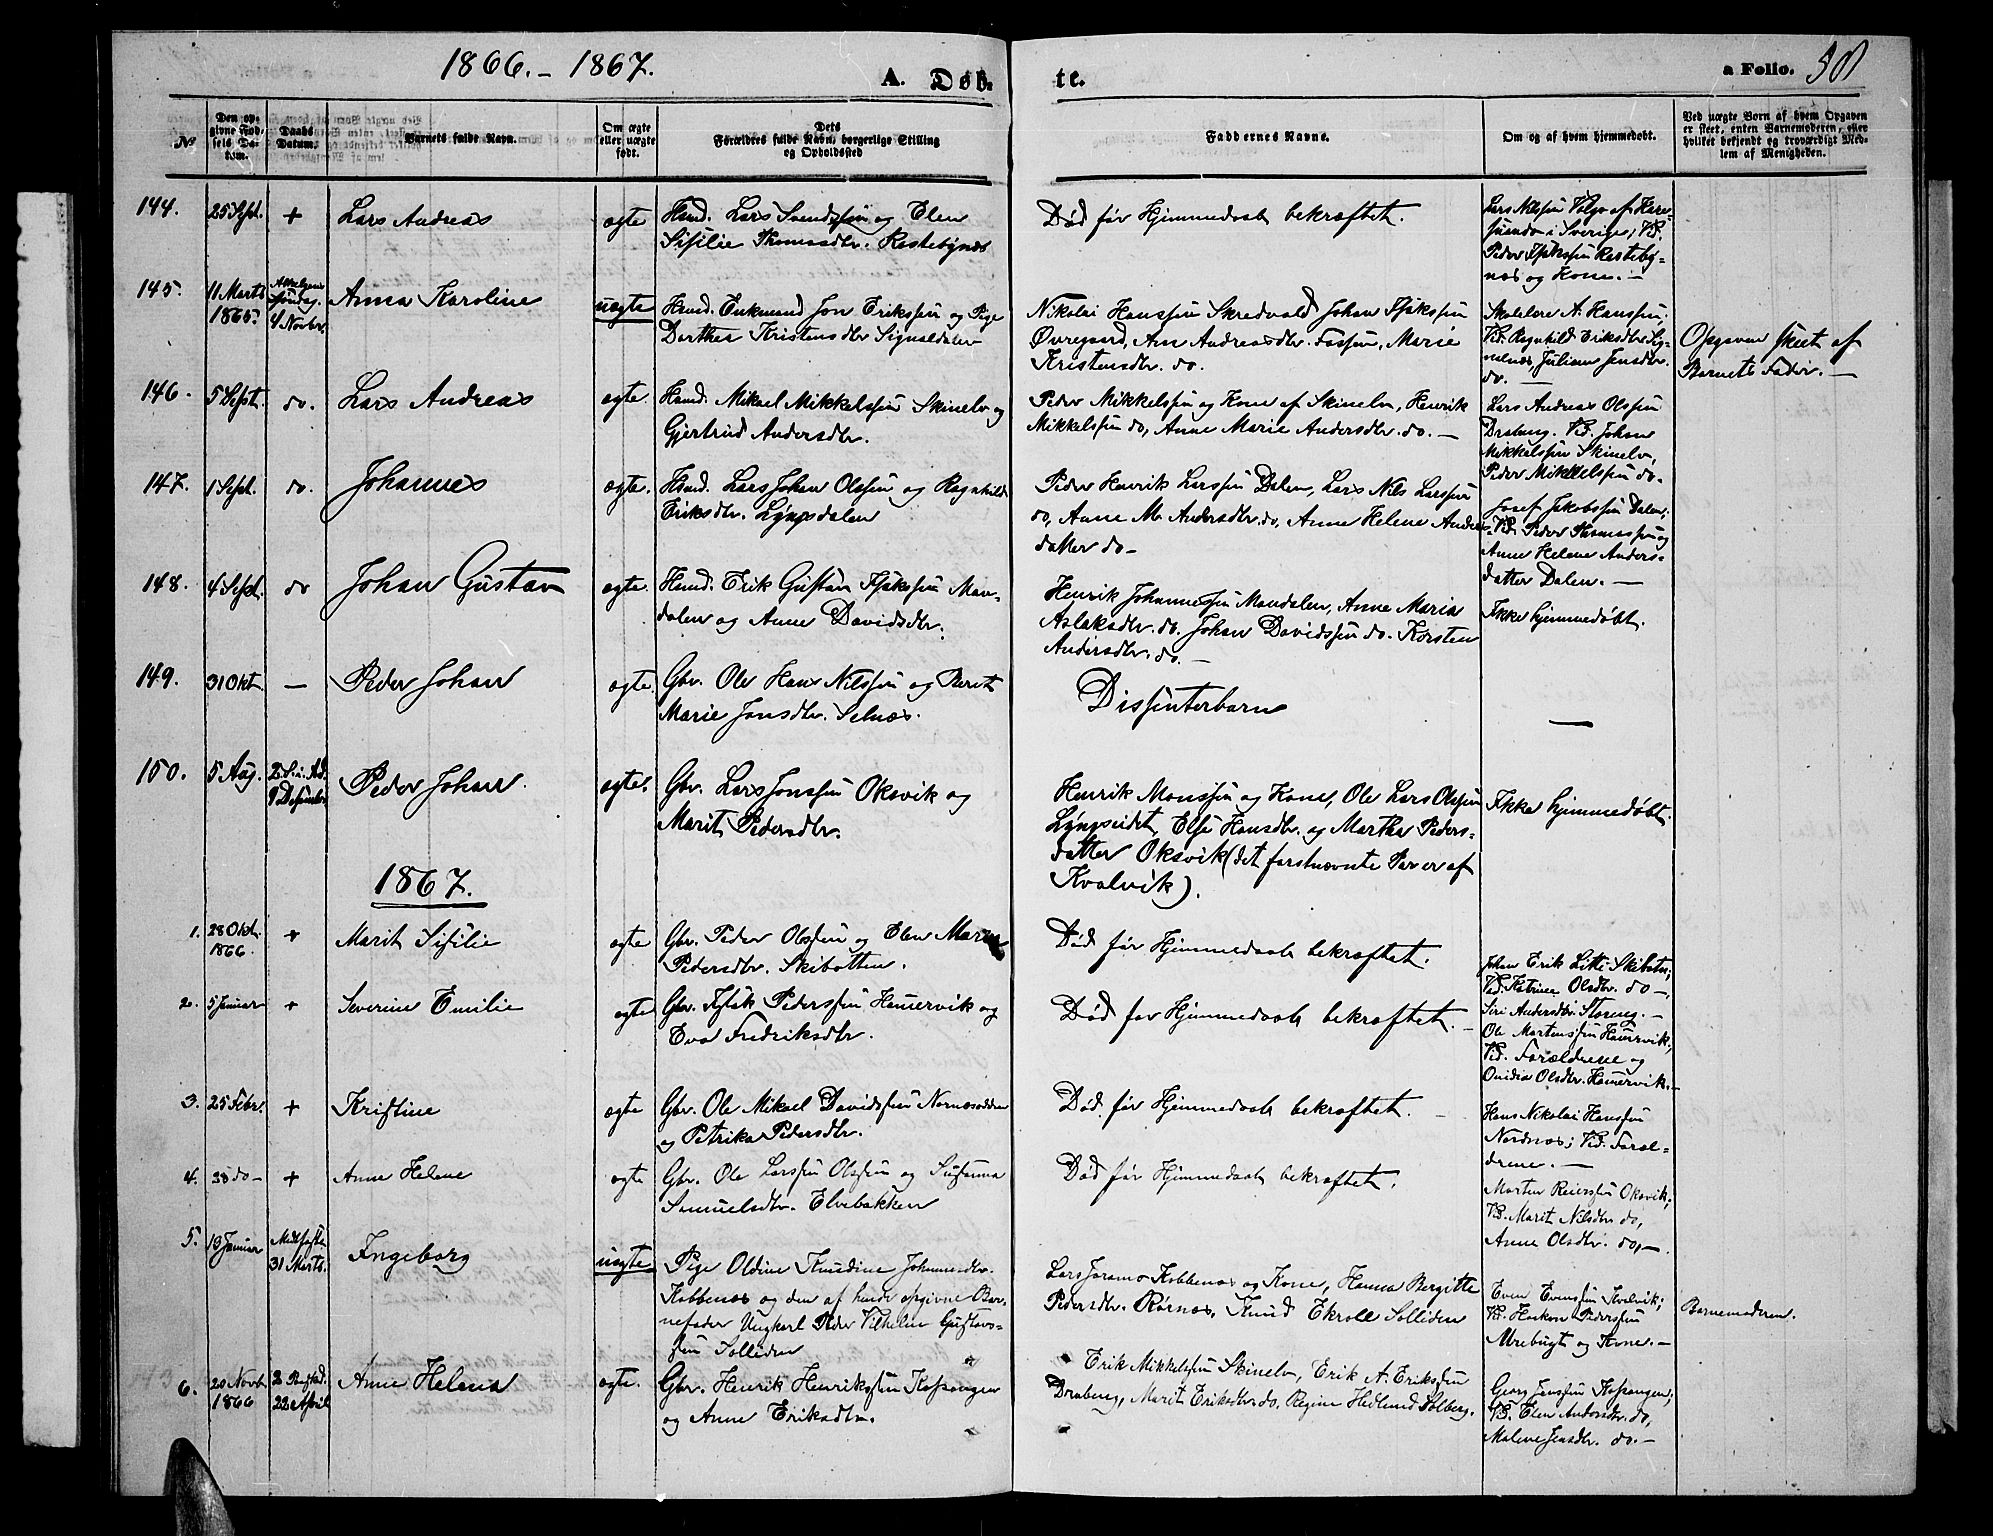 1866. - 1867.
A. Døb-
te.
a Folio.
No
Den op-
givne Fød-
sels Da-
tum.
Daabs
Datum.
Barnets fulde Navn.
Om ægte
eller uægte
født.
Dets
Forældres fulde Navn, borgerlige Stilling
og Opholdssted
Faddernes Navne.
Om og af hvem hjemmedøbt.
Ved uægte Børn af hvem Opgaven
er skeet, enten Barnemoderen, eller
hvilket bekjendt og troværdigt Med-
lem af Menigheden.
144.
25 Sept.
+
Lars Andreas
ægte
Hmd. Lars Svendssen og Elen
Sisilie Thomasdtr.
Død før Hjemmedaab bekræftet.
Lars Nilssen
i Sverige; Vid.
Peder
og Kone. -
145.
11 Marts
1865.
Søndag.
4 Novbr.
Anna Karoline
uægte
Hmd. Enkemand Jon Erikssen og Pige
Dorthea Kristensdtr. Signaldalen
Nikolai Hanssen Skredvold, Johan Isakssen
Øvregaard, Ane Andreasdtr. Fossen, Marie
Kristensdtr. do.
Skolelærer A. Hanssen;
Vid. Ragnhild Eriksdtr.
Juliane Jensdtr.
do. -
Opgaven skeet af
Barnets Fader. -
146.
5 Sept.
do.
Lars Andreas
ægte.
Hmd. Mikael Mikkelssen Skinelv og
Gjertrud Andersdtr.
Peder Mikkelssen og Kone af Skinelv, Henrik
Mikkelssen do, Anne Marie Andersdtr. do. -
Lars Andreas Olssen
Vid. Johan
Mikkelssen Skinelv,
Peder Mikkelssen do.
147.
1 Sept.
do.
Johannes
ægte.
Hmd. Lars Johan Olssen og Ragnhild
Eriksdtr. Lyngsdalen
Peder Henrik Larssen Dalen, Lars Nils Larssen
do, Anne M. Andersdtr. do, Anne Helene Anders-
datter do -
Josef Jakobssen Dalen;
Vid. Peder Rasmussen og
Anne Helene Anders-
datter Dalen. -
148.
4 Sept.
do
Johan Gustav
ægte.
Hmd. Erik Gustav Isakssen Man-
dalen og Anne Davidsdtr.
Henrik Johannessen Mandalen, Anne Maria
Aslaksdtr. do. Johan Davidssen do. Korsten
Andersdtr. do. -
Ikke hjemmedøbt.
149.
31 Okt.
-
Peder Johan
ægte.
Gbr. Ole Hans Nilssen og Berit
Marie Jonsdtr. Selnæs.
Dissenterbarn
-
150.
5 Aug.
2 S. i Ad.
9 Desember
Peder Johan.
ægte.
Gbr. Lars Jonssen Oksvik og
Marit Pedersdtr.
Henrik Monssen og Kone, Ole Lars Olssen
Lyngseidet, Else Hansdtr. og Marthe Peders-
datter Oksvik (det førstnævnte Par er af
Kvalvik).
Ikke hjemmedøbt.
1867.
1.
28 Okt.
1866.
+
Marit Sisilie
ægte
Gbr. Peder Olssen og Elen Marie
Pedersdtr. Skibotten.
Død før Hjemmedaab bekræftet.
Johan Erik Litti Skibotn;
Vid. Katrine Olsdtr. do -,
Siri Andersdtr. Storeng. -
2.
5 Januar
+
Severine Emilie
ægte
Gbr. Isak Pederssen Havnervik og
Eva Fredriksdtr.
Død før Hjemmedaab bekræftet. -
Ole Martenssen
Vid. Forældrene og
Ovidia Olsdtr.
3.
25 Febr.
+
Kristine
ægte
Gbr. Ole Mikael Davidssen Nornæsodden
og Petrika Pedersdtr.
Død før Hjemmedaab bekræftet. -
Hans Nikolai Hanssen
Nordnæs; Vid. Foræl-
drene. -
4.
23 do -
+
Anne Helene
ægte
Gbr. Ole Larssen Olssen og Susanna
Samuelsdtr. Elvebakken
Død før Hjemmedaab bekræftet.
Morten Reierssen Oksvik;
Vid. Marit Nilsdtr. do,
Anne Olsdtr. do, -.
5.
19 Januar
Midfaste
31 Marts.
Ingeborg
uægte
Pige Oldine Knudine Johannesdtr.
Kobbenæs og den af hende opgivne Bar-
nefader Ungkarl Peder Vilhelm Gustavs-
sen Solliden
Lars Joramo Kobbenæs og Kone, Hanna Bergitte
Pedersdtr. Rørnæs, Knud Ekroll Solliden
Even Evenssen Kvalvik;
Vid. Haakon Pederssen
og Kone. -
Barnemoderen.
6.
20 Novb.
1866
22 April
Anne Helena
ægte.
Gbr. Henrik Henrikssen Kofsangen
og Anne Eriksdtr.
Erik Mikkelssen Skinelv, Erik A. Erikssen
Marit Eriksdtr. do, Regine Hedlund Solberg.
Georg Janssen Kofsangen;
Vid. Elen Andersdtr. do,
Malene Jensdtr. do. -